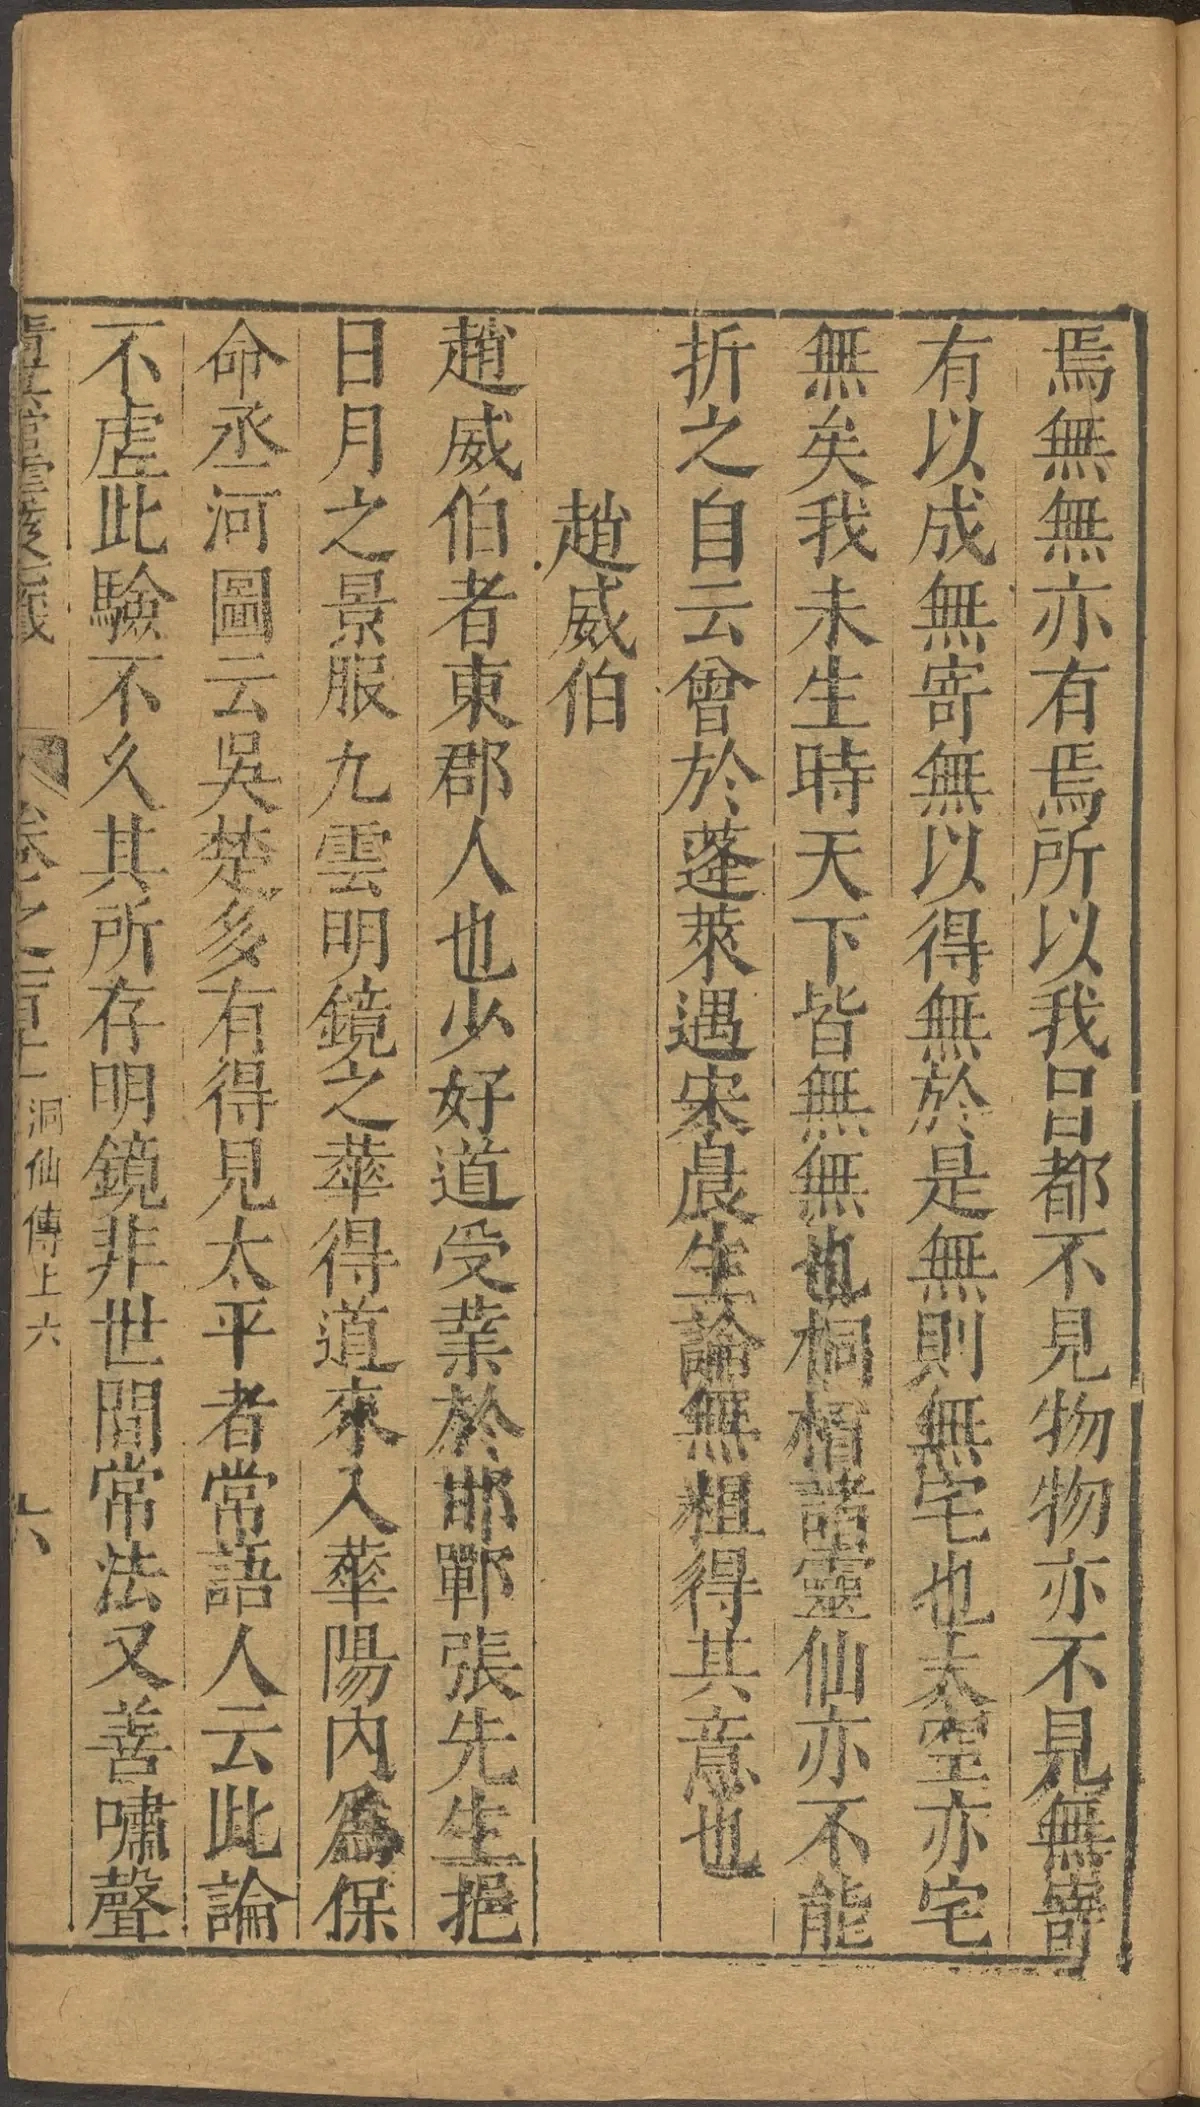 焉無無亦有焉所以我目都不見物物亦不見無寄
有以成無寄無以得無於是無則無宅也太空亦宅
無矣我未生時天下皆無無也桐栢諸靈仙亦不能
折之自云曾於蓬萊遇宋晨生論無粗得其意也
趙威伯
趙威伯者東郡人也少好道受業於邯鄲張先生挹
日月之景服九雲明鏡之華得道來入華陽內爲保
命丞河圖云吳楚多有得見太平者常語人云此論
不虛此驗不久其所存明鏡非世間常法又善嘯聲
雲笈七籤
卷之一百十一
洞仙傳上六
六